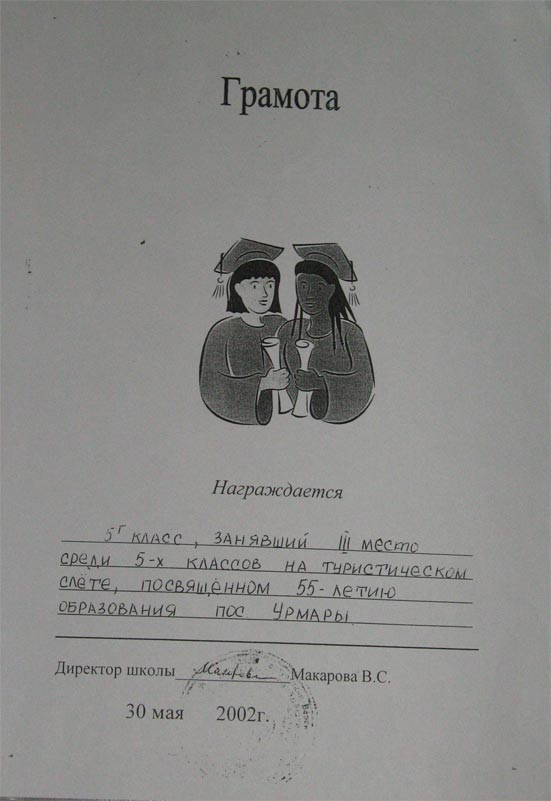 Грамота
Награждается
5г КЛАСС, ЗАНЯВШИЙ III МЕСТО
СРЕДИ 5-Х КЛАССОВ НА ТУРИСТИЧЕСКОМ
СЛЁТЕ, ПОСВЯЩЁННОМ 55-ЛЕТИЮ
ОБРАЗОВАНИЯ ПОС УРМАРЫ
Директор школы Макарова В.С.
30 мая 2002г.